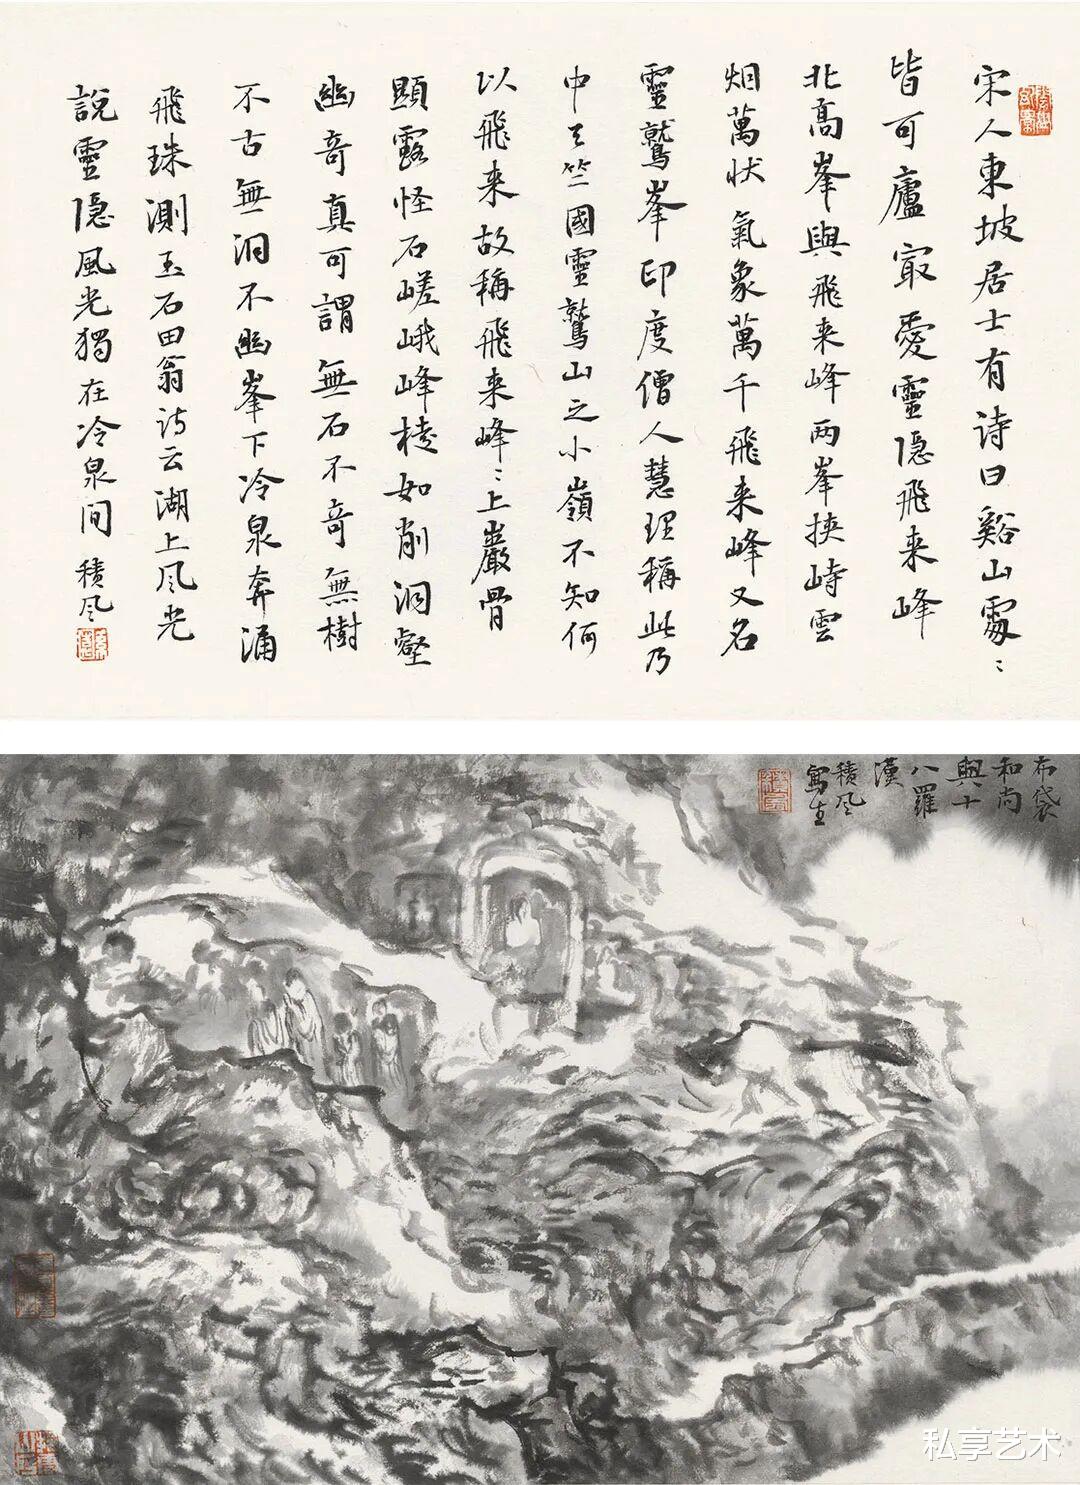 宋人東坡居士有诗曰谿山處〻
皆可廬寂愛靈隐飛来峰
北高峯與飛来峰两峯挟峙雲
烟萬状氣象萬千飛来峰又名
靈鷲峯印度僧人慧理稱此乃
中天竺國靈鷲山之小嶺不知何
以飛来故稱飛来峰〻上巖骨
顯露怪石嵯峨峰棱如削洞壑
幽奇真可謂無石不奇無樹
不古無洞不幽峯下冷泉奔涌
飛珠测玉石田翁诗云湖上风光
說靈隐風光獨在冷泉间 積风
布袋
和尚
與十
八羅
漢
積风
寫生
私享艺术